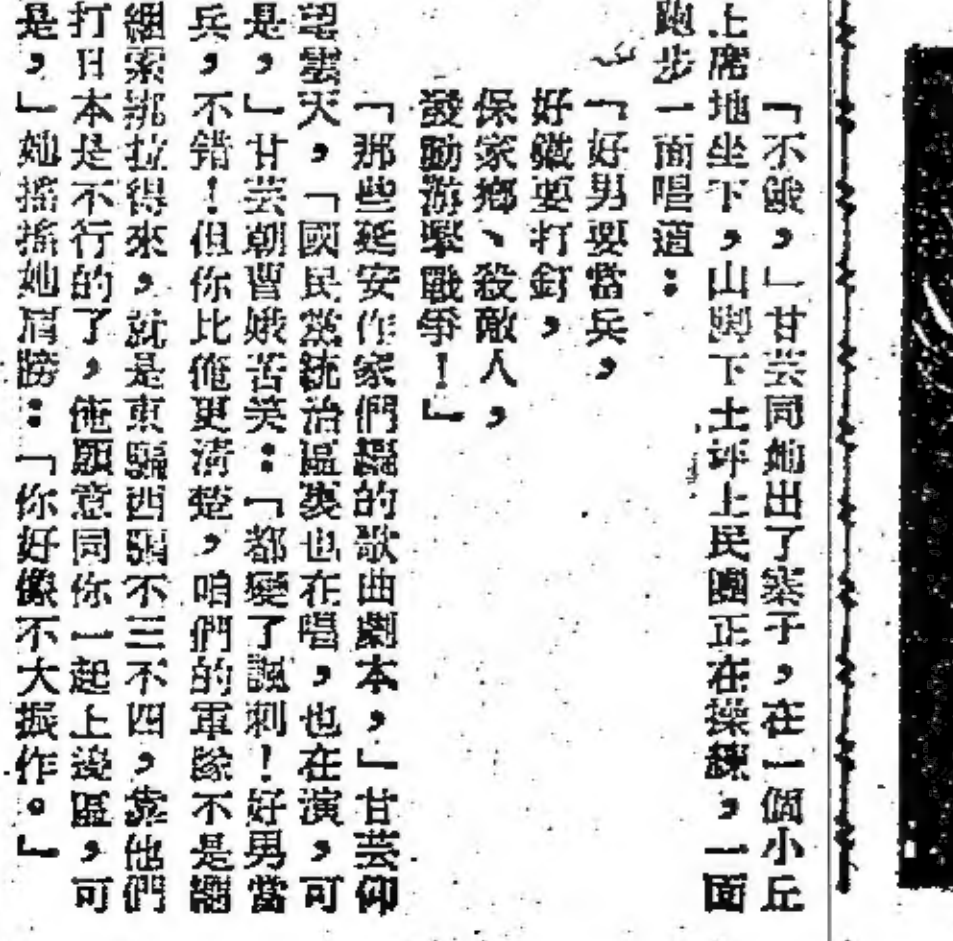 「不餓，」甘芸同她出了寨子，在一個小丘
上席地坐下，山脚下土坪上民團正在操練，一面
跑步一面唱道：
「好男要當兵，
好鐵要打釘，
保家鄉、殺敵人，
發動游擊戰爭！」
「那些延安作家們編的歌曲劇本，」甘芸仰
望雲天，「國民黨統治區裏也在唱，也在演，可
是，」甘芸朝曹娥苦笑：「都變了諷刺！好男當
兵，不錯！但你比俺更清楚，咱們的軍隊不是繩
細索綁拉得來，就是東騙西騙不三不四，靠他們
打日本是不行的了，俺願意同你一起上邊區，可
是，」她搖搖她肩膀：「你好像不大振作。」